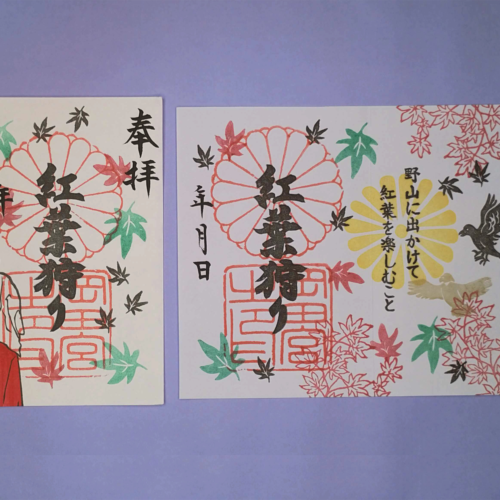 奉拝
紅葉狩り
年
野山に出かけて
紅葉を楽しむこと
紅葉狩り
年月日